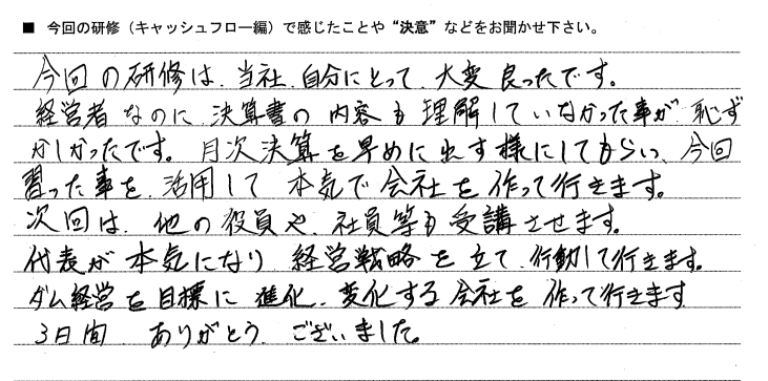 ■ 今回の研修（キャッシュフロー編）で感じたことや“決意”などをお聞かせ下さい。
今回の研修は、当社、自分にとって、大変良ったです。
経営者なのに決算書の内容も理解していなかった事が恥ず
かしかったです。月次決算を早めに出す様にしてもらい、今回
習った事を、活用して本気で会社を作って行きます。
次回は、他の役員や、社員等も受講させます。
代表が本気になり経営戦略を立て、行動して行きます。
ダム経営を目標に進化、変化する会社を作って行きます
3日間ありがとうございました。